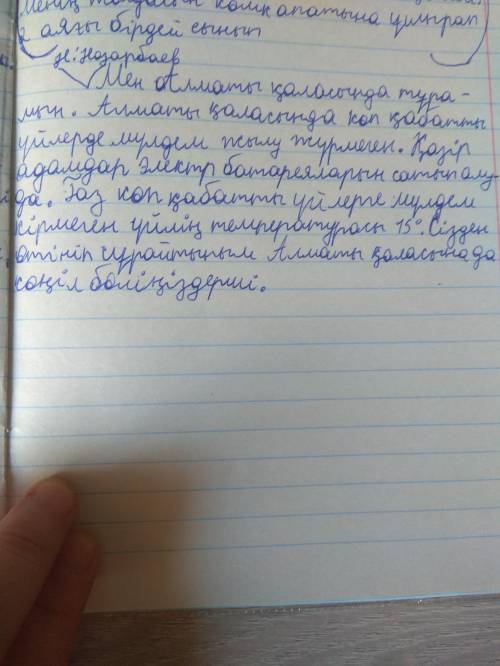 аяғы бірдей сынып
Н. Назарбаев
Мен Алматы қаласында тұра-
мын. Алматы қаласында көп қабатты
үйлерде мүлдем жылу жүрмеген. Қазір
адамдар электр батареяларын сатып алу-
да. Газ көп қабатты үйлерге мүлдем
кірмеген үйлің температурасы 15°. Сізден
өтініп сұрайтыным Алматы қаласына да
көңіл бөліңіздерші.